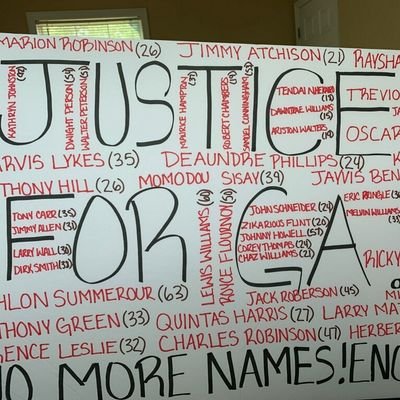 MARION ROBINSON (26) JIMMY ATCHISON (21) RAYSHA
JUSTICE
KATHRYN JOHNSTON (92)
DWIGHT PERSON (54)
WALTER PETERSON (51)
MAURICE HAMPTON (31)
ROBERT CHAMBERS (19)
SAMUEL CUNNINGHAM (52)
TENDAI NHEKAIRO (18)
DAWNTRAE WILLIAMS (15)
ARISTON WAITERS (19)
TREVIO
JA
OSCAR
ARVIS LYKES (35) DEAUNDRE PHILLIPS (24) K
THONY HILL (26) MOMODOU SISAY (39) JAYVIS BEN
FOR GA
TONY CARR (35)
JIMMY ALLEN (31)
LARRY WALL (30)
DIRK SMITH (32)
LEWIS WILLIAMS (60)
ROYCE FLOURNOY (51)
JOHN SCHNEIDER (24)
ZIKARIOUS FLINT (20)
JOHNNY HOWELL (57)
COREY THOMAS (24)
CHAZ WILLIAMS (21)
ERIC PRINGLE (36
MELVIN WILLIAMS
(33)
RICKY
HLON SUMMEROUR (63) JACK ROBERSON (45) MI
THONY GREEN (33) QUINTAS HARRIS (27) LARRY MAT
RENCE LESLIE (32) CHARLES ROBINSON (47) HERBER
NO MORE NAMES! ENO